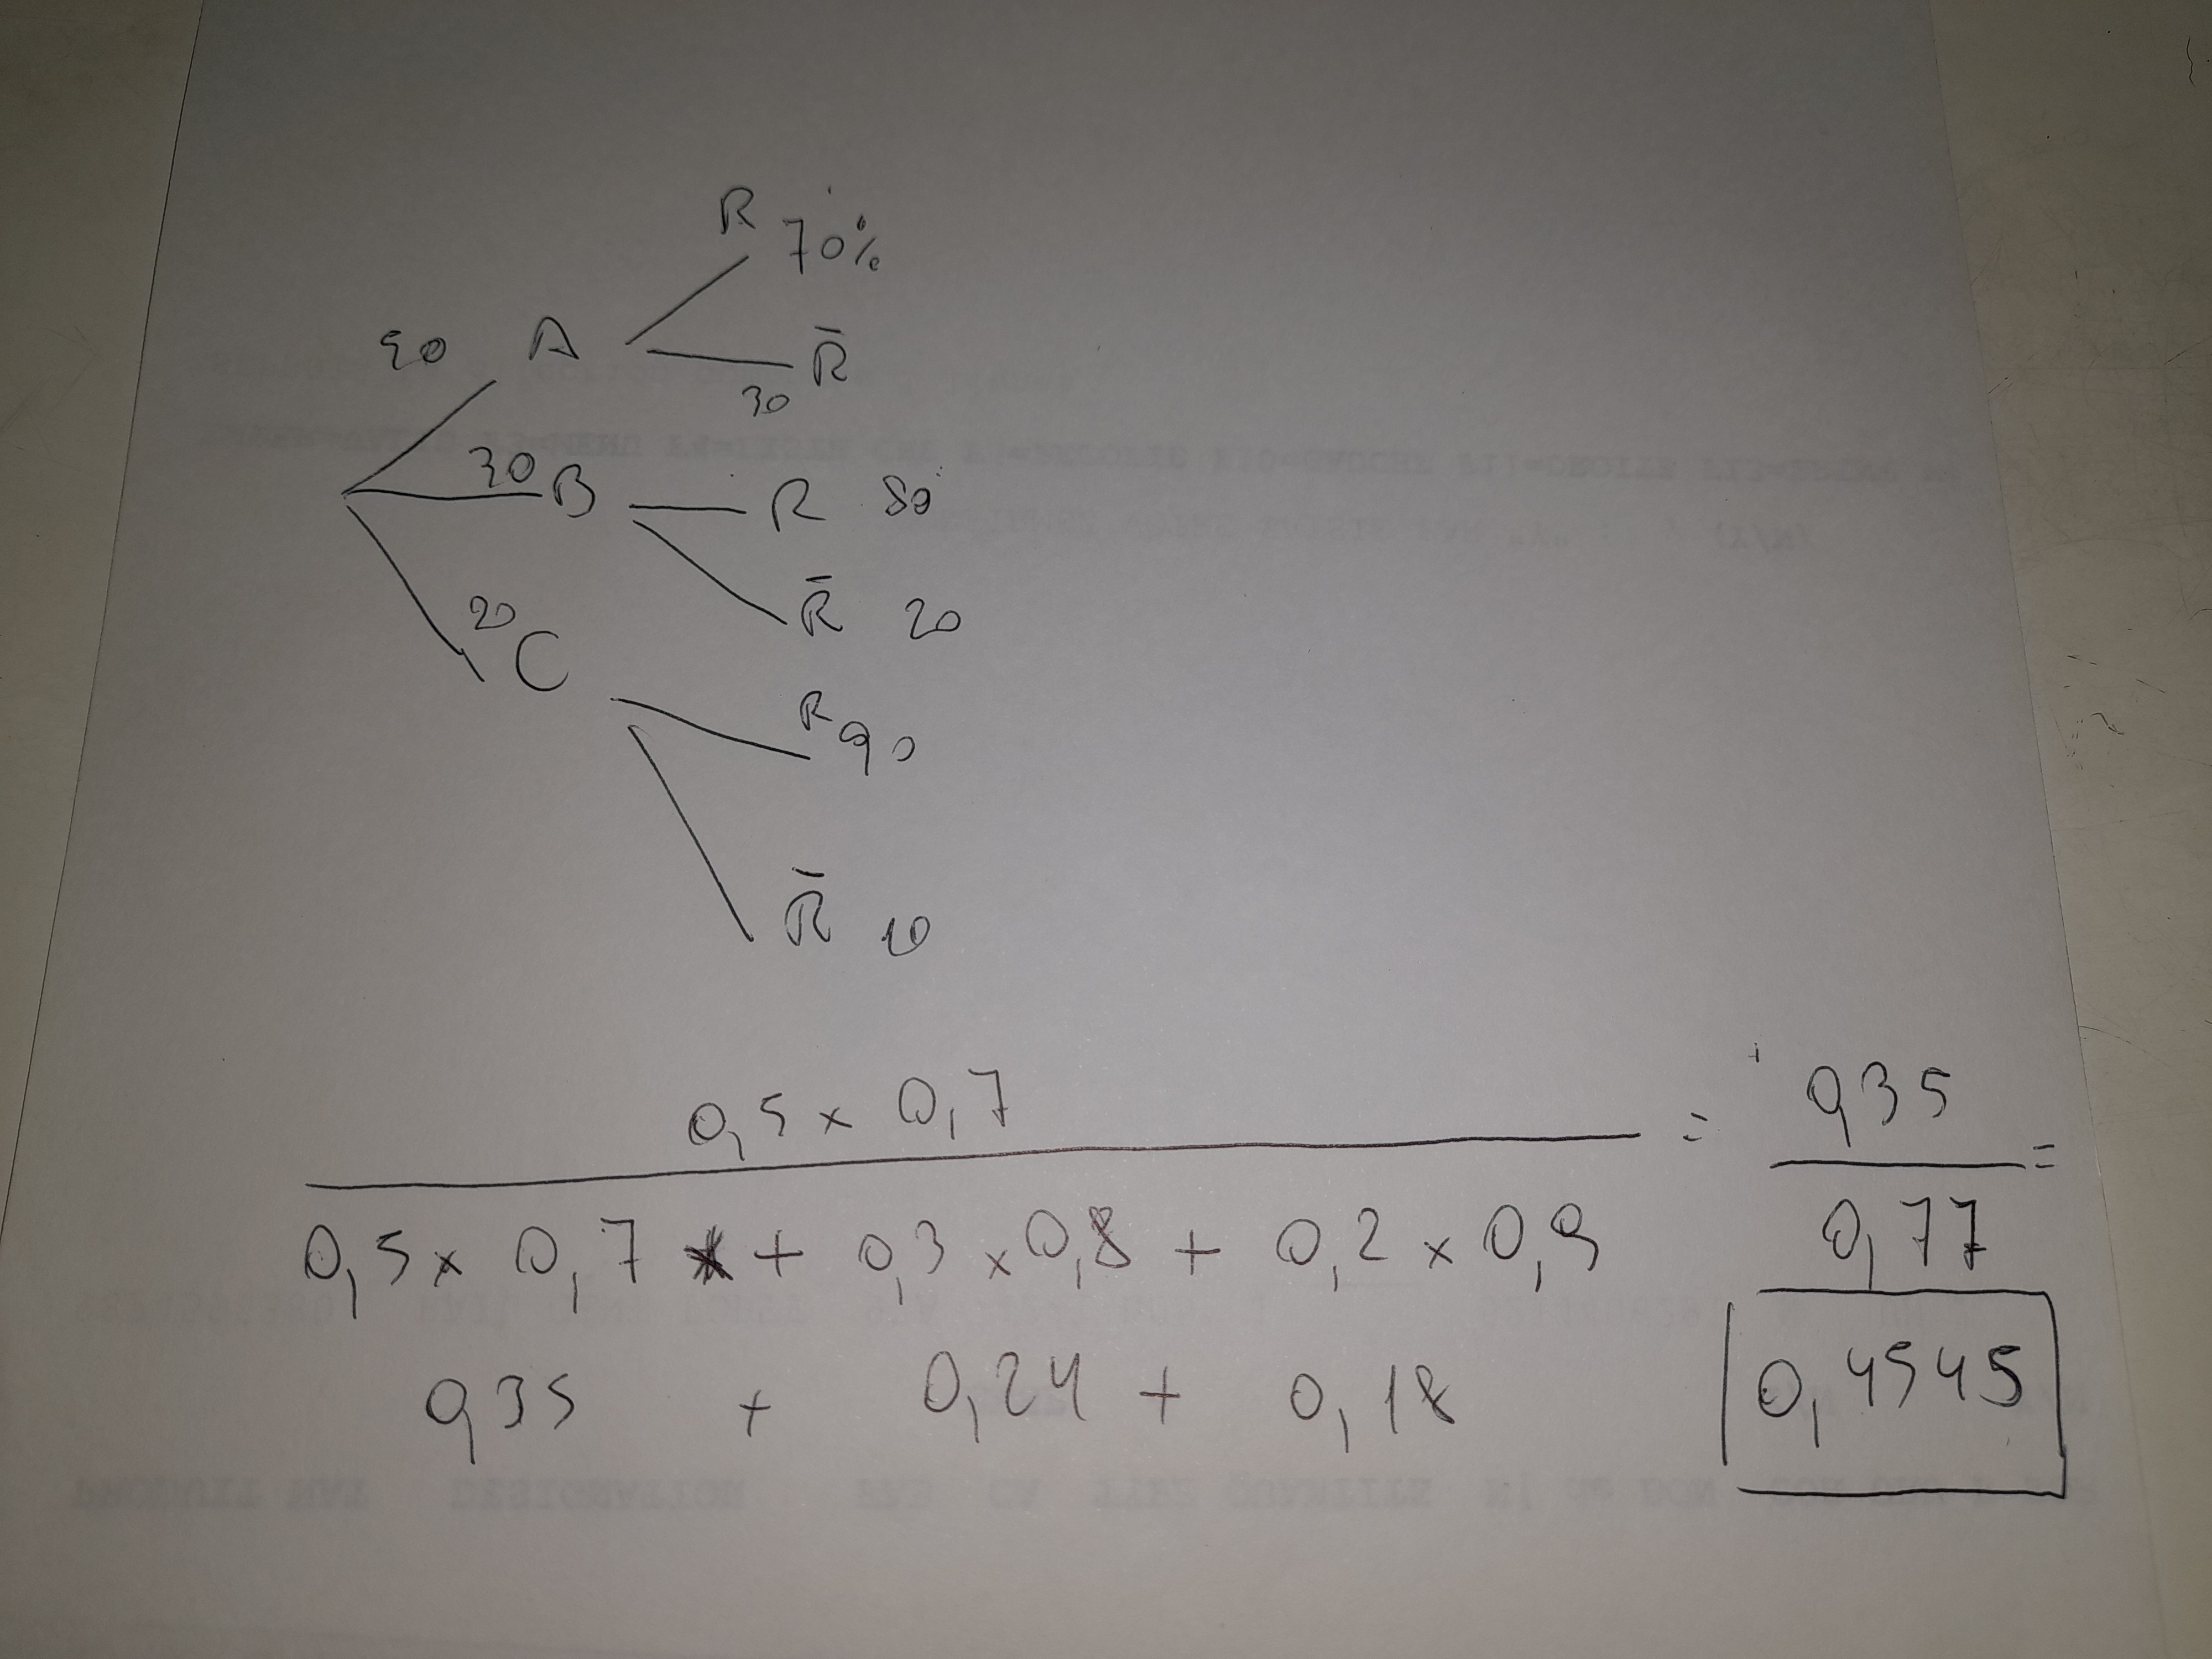 R 70%
50 A
R̄
30
30 B R 80
R̄ 20
20 C
R 90
R̄ 10
0,5 x 0,7 = 0,35 =
0,5 x 0,7 + 0,3 x 0,8 + 0,2 x 0,9 0,77
0,35 + 0,24 + 0,18 0,4545